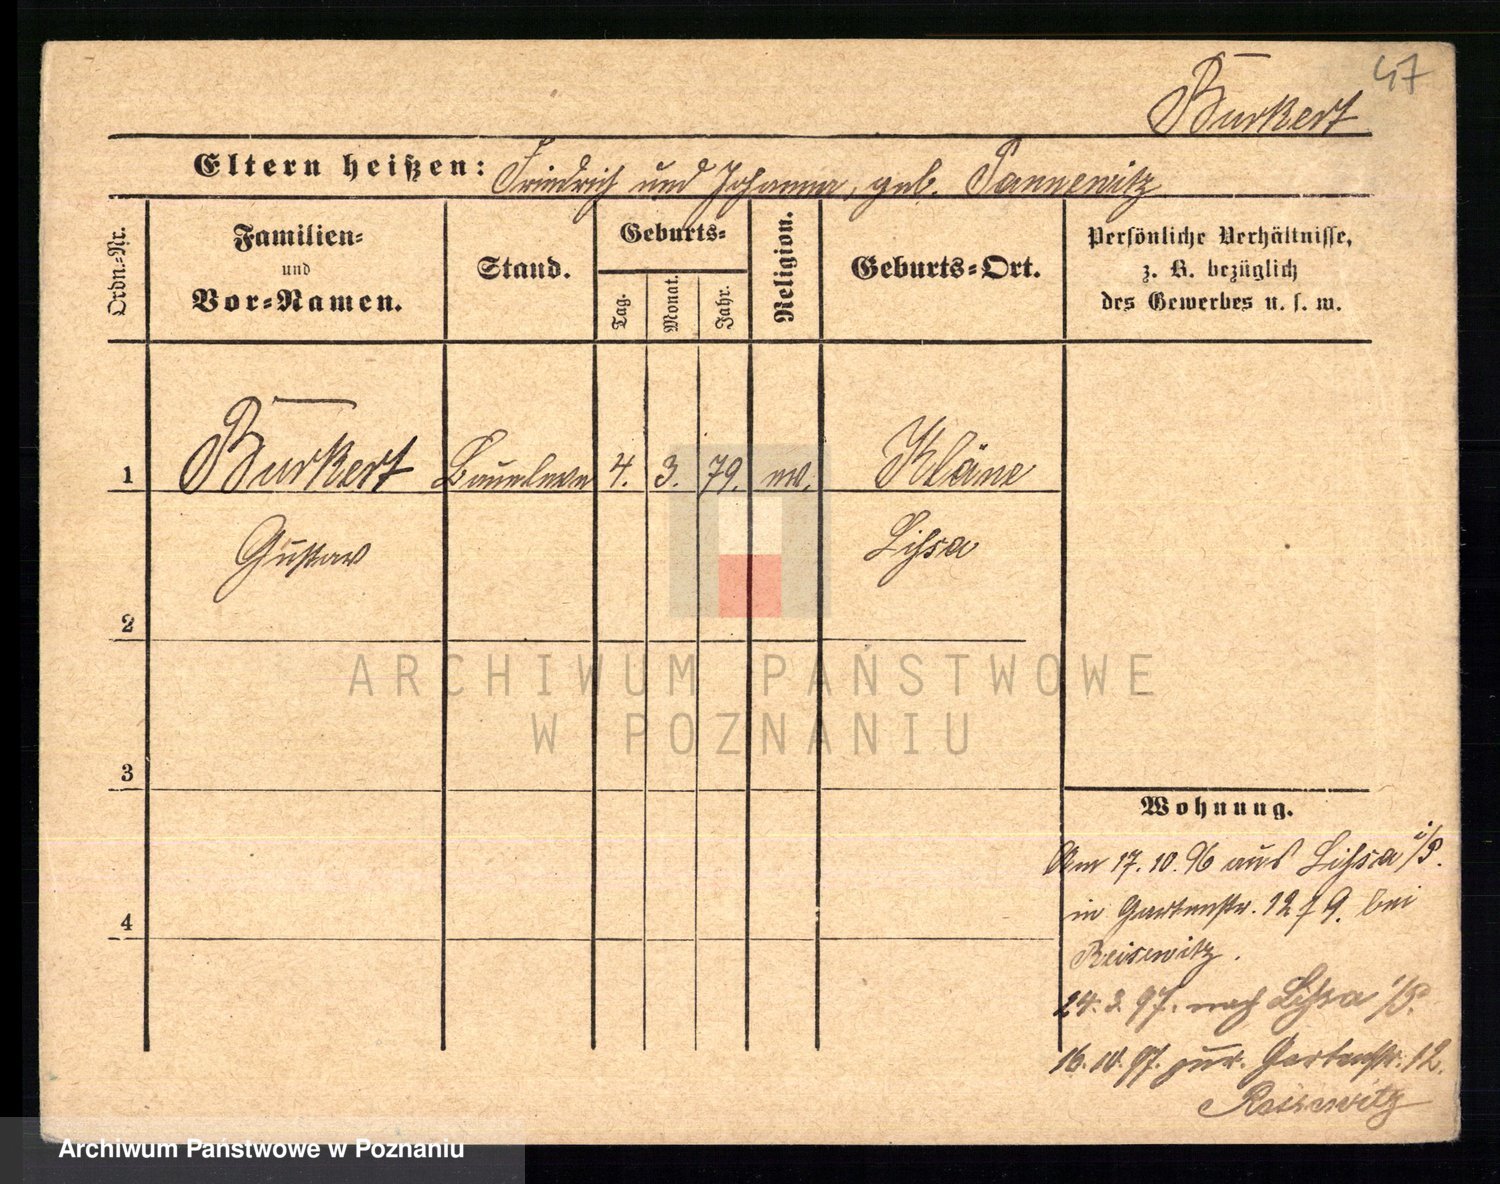 47
Burkert
Eltern heißen: Friedrich und Johanna, geb. Pannewitz
Ordn.-Nr.
Familien-
und
Vor-Namen.
Stand.
Geburts-
Tag.
Monat.
Jahr.
Religion.
Geburts-Ort.
Persönliche Verhältnisse,
z. B. bezüglich
des Gewerbes u. s. w.
1 Burkert 4. 3. 79. ev. Kläne
Gustav Lissa
2
3
4
Wohnung.
Am 17.10.96 aus Lissa i/P.
in Gartenstr. 12 / 9. bei
Reisewitz.
24.3.97. nach Lissa i/P.
16.10.97. zur. Gartenstr. 12.
Reisewitz
ARCHIWUM PAŃSTWOWE
W POZNANIU
Archiwum Państwowe w Poznaniu